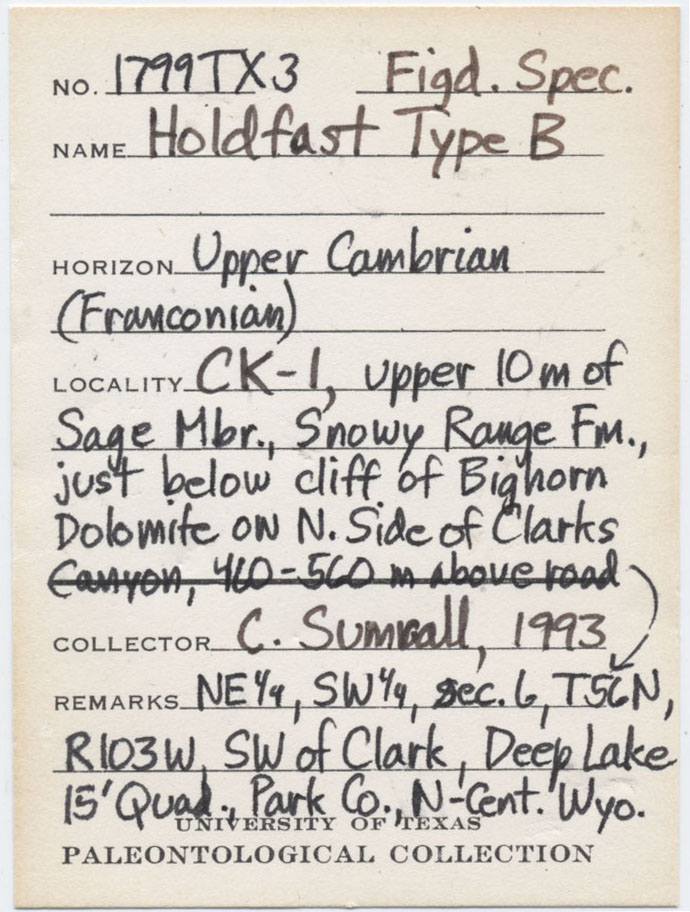 NO. 1799TX3 Figd. Spec.
NAME Holdfast Type B
HORIZON Upper Cambrian
(Franconian)
LOCALITY CK-1, upper 10 m of
Sage Mbr., Snowy Range Fm.,
just below cliff of Bighorn
Dolomite on N. Side of Clarks
Canyon, 460-560 m above road
COLLECTOR C. Sumrall, 1993
REMARKS NE 1/4, SW 1/4, sec. 6, T56N,
R103W, SW of Clark, Deep Lake
15' Quad., Park Co., N-Cent. Wyo.
UNIVERSITY OF TEXAS
PALEONTOLOGICAL COLLECTION